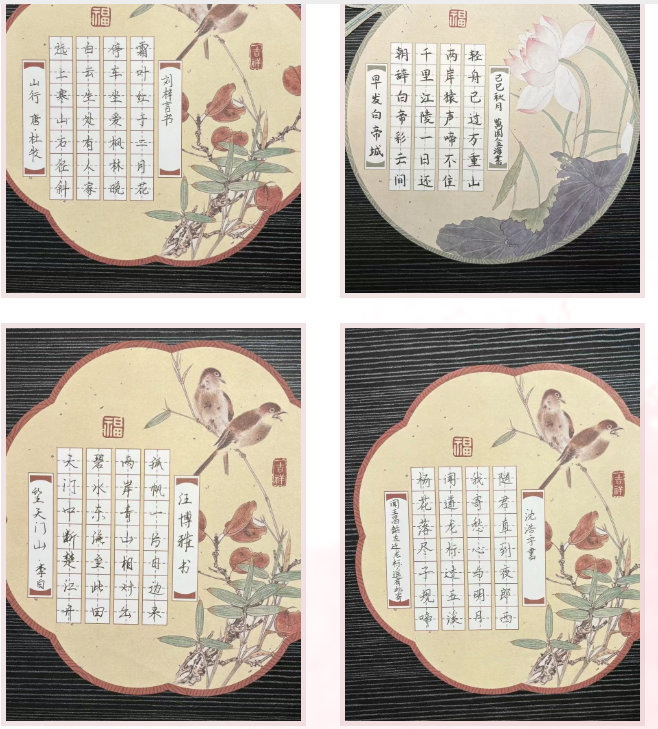 福
吉祥
山行 唐·杜牧
远上寒山石径斜
白云生处有人家
停车坐爱枫林晚
霜叶红于二月花
刘梓言书
福
早发白帝城
朝辞白帝彩云间
千里江陵一日还
两岸猿声啼不住
轻舟已过万重山
己巳秋月
福
吉祥
望天门山 李白
天门中断楚江开
碧水东流至此回
两岸青山相对出
孤帆一片日边来
汪博雅书
福
吉祥
闻王昌龄左迁龙标遥有此寄
杨花落尽子规啼
闻道龙标过五溪
我寄愁心与明月
随君直到夜郎西
沈浩宇書